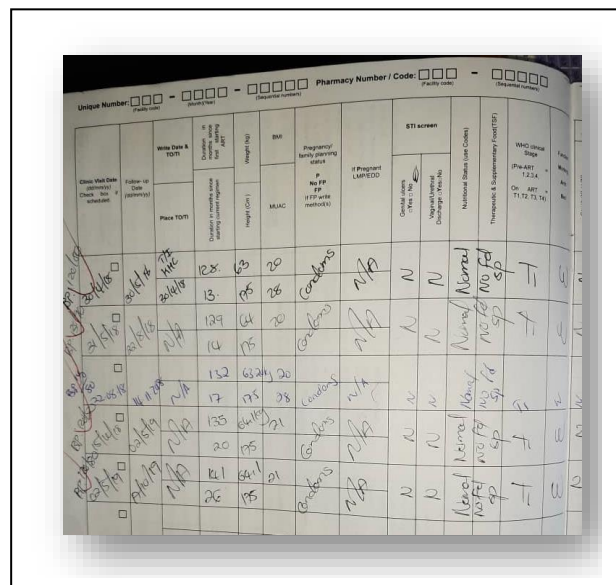 Unique Number: □□□ - □□□□ - □□□□□ Pharmacy Number / Code: □□□ - □□□□□
(Facility code) (Month/Year) (Sequential numbers) (Facility code) (Sequential numbers)
Clinic Visit Date (dd/mm/yy) Check box if scheduled
Follow-up Date (dd/mm/yy)
Write Date & TO/TI
Place TO/TI
Duration in months since first starting ART
Duration in months since starting current regimen
Weight (kg)
Height (Cm)
BMI
MUAC
Pregnancy/ family planning status
P
No FP
FP
If FP write method(s)
If Pregnant LMP/EDD
STI screen
Genital ulcers □Yes □No
Vaginal/Urethral Discharge □Yes □No
Nutritional Status (use Codes)
Therapeutic & Supplementary Food(TSF)
WHO clinical Stage
(Pre-ART = 1,2,3,4,
On ART = T1,T2, T3, T4)
30/4/18 128 63 20 condoms N/A N N Normal
30/4/18 13 175 28 No Fd sp
N/A 129 64 20 Condoms N/A N N Normal
14 175 No Fd sp
22-08-18 N/A 132 20 Condoms N/A N N Normal
17 175 28 No Fd sp
02/5/19 N/A 135 21 Condoms N/A N N Normal
20 175 No Fd sp
02/5/19 N/A 141 64.1 21 Condoms N/A N N Normal
26 175 No Fd sp